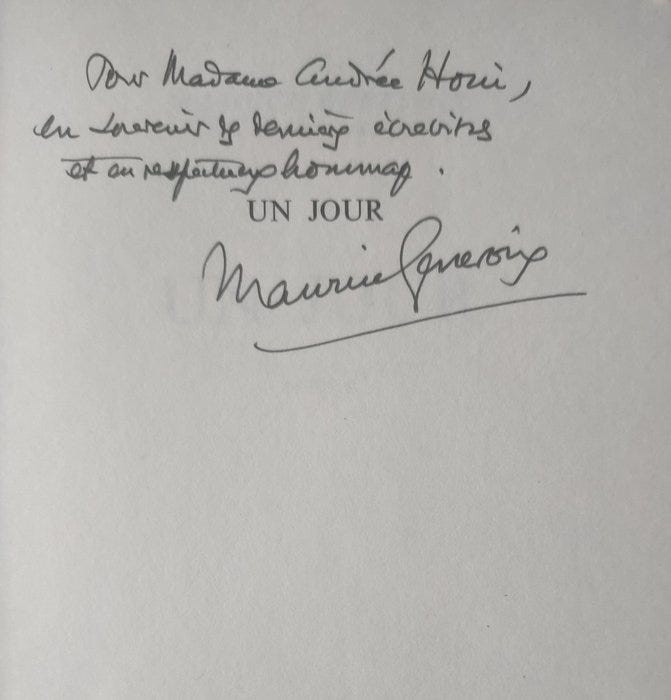 Pour Madame Andrée Houi,
en souvenir de dernières écrevisses
et en respectueux hommage.
UN JOUR
Maurice Genevoix